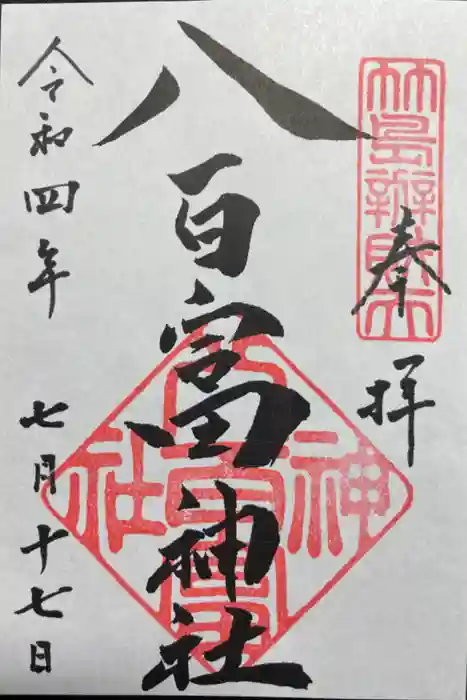 竹島辨財天
奉拝
八百富神社
八百富神社
令和四年 七月十七日